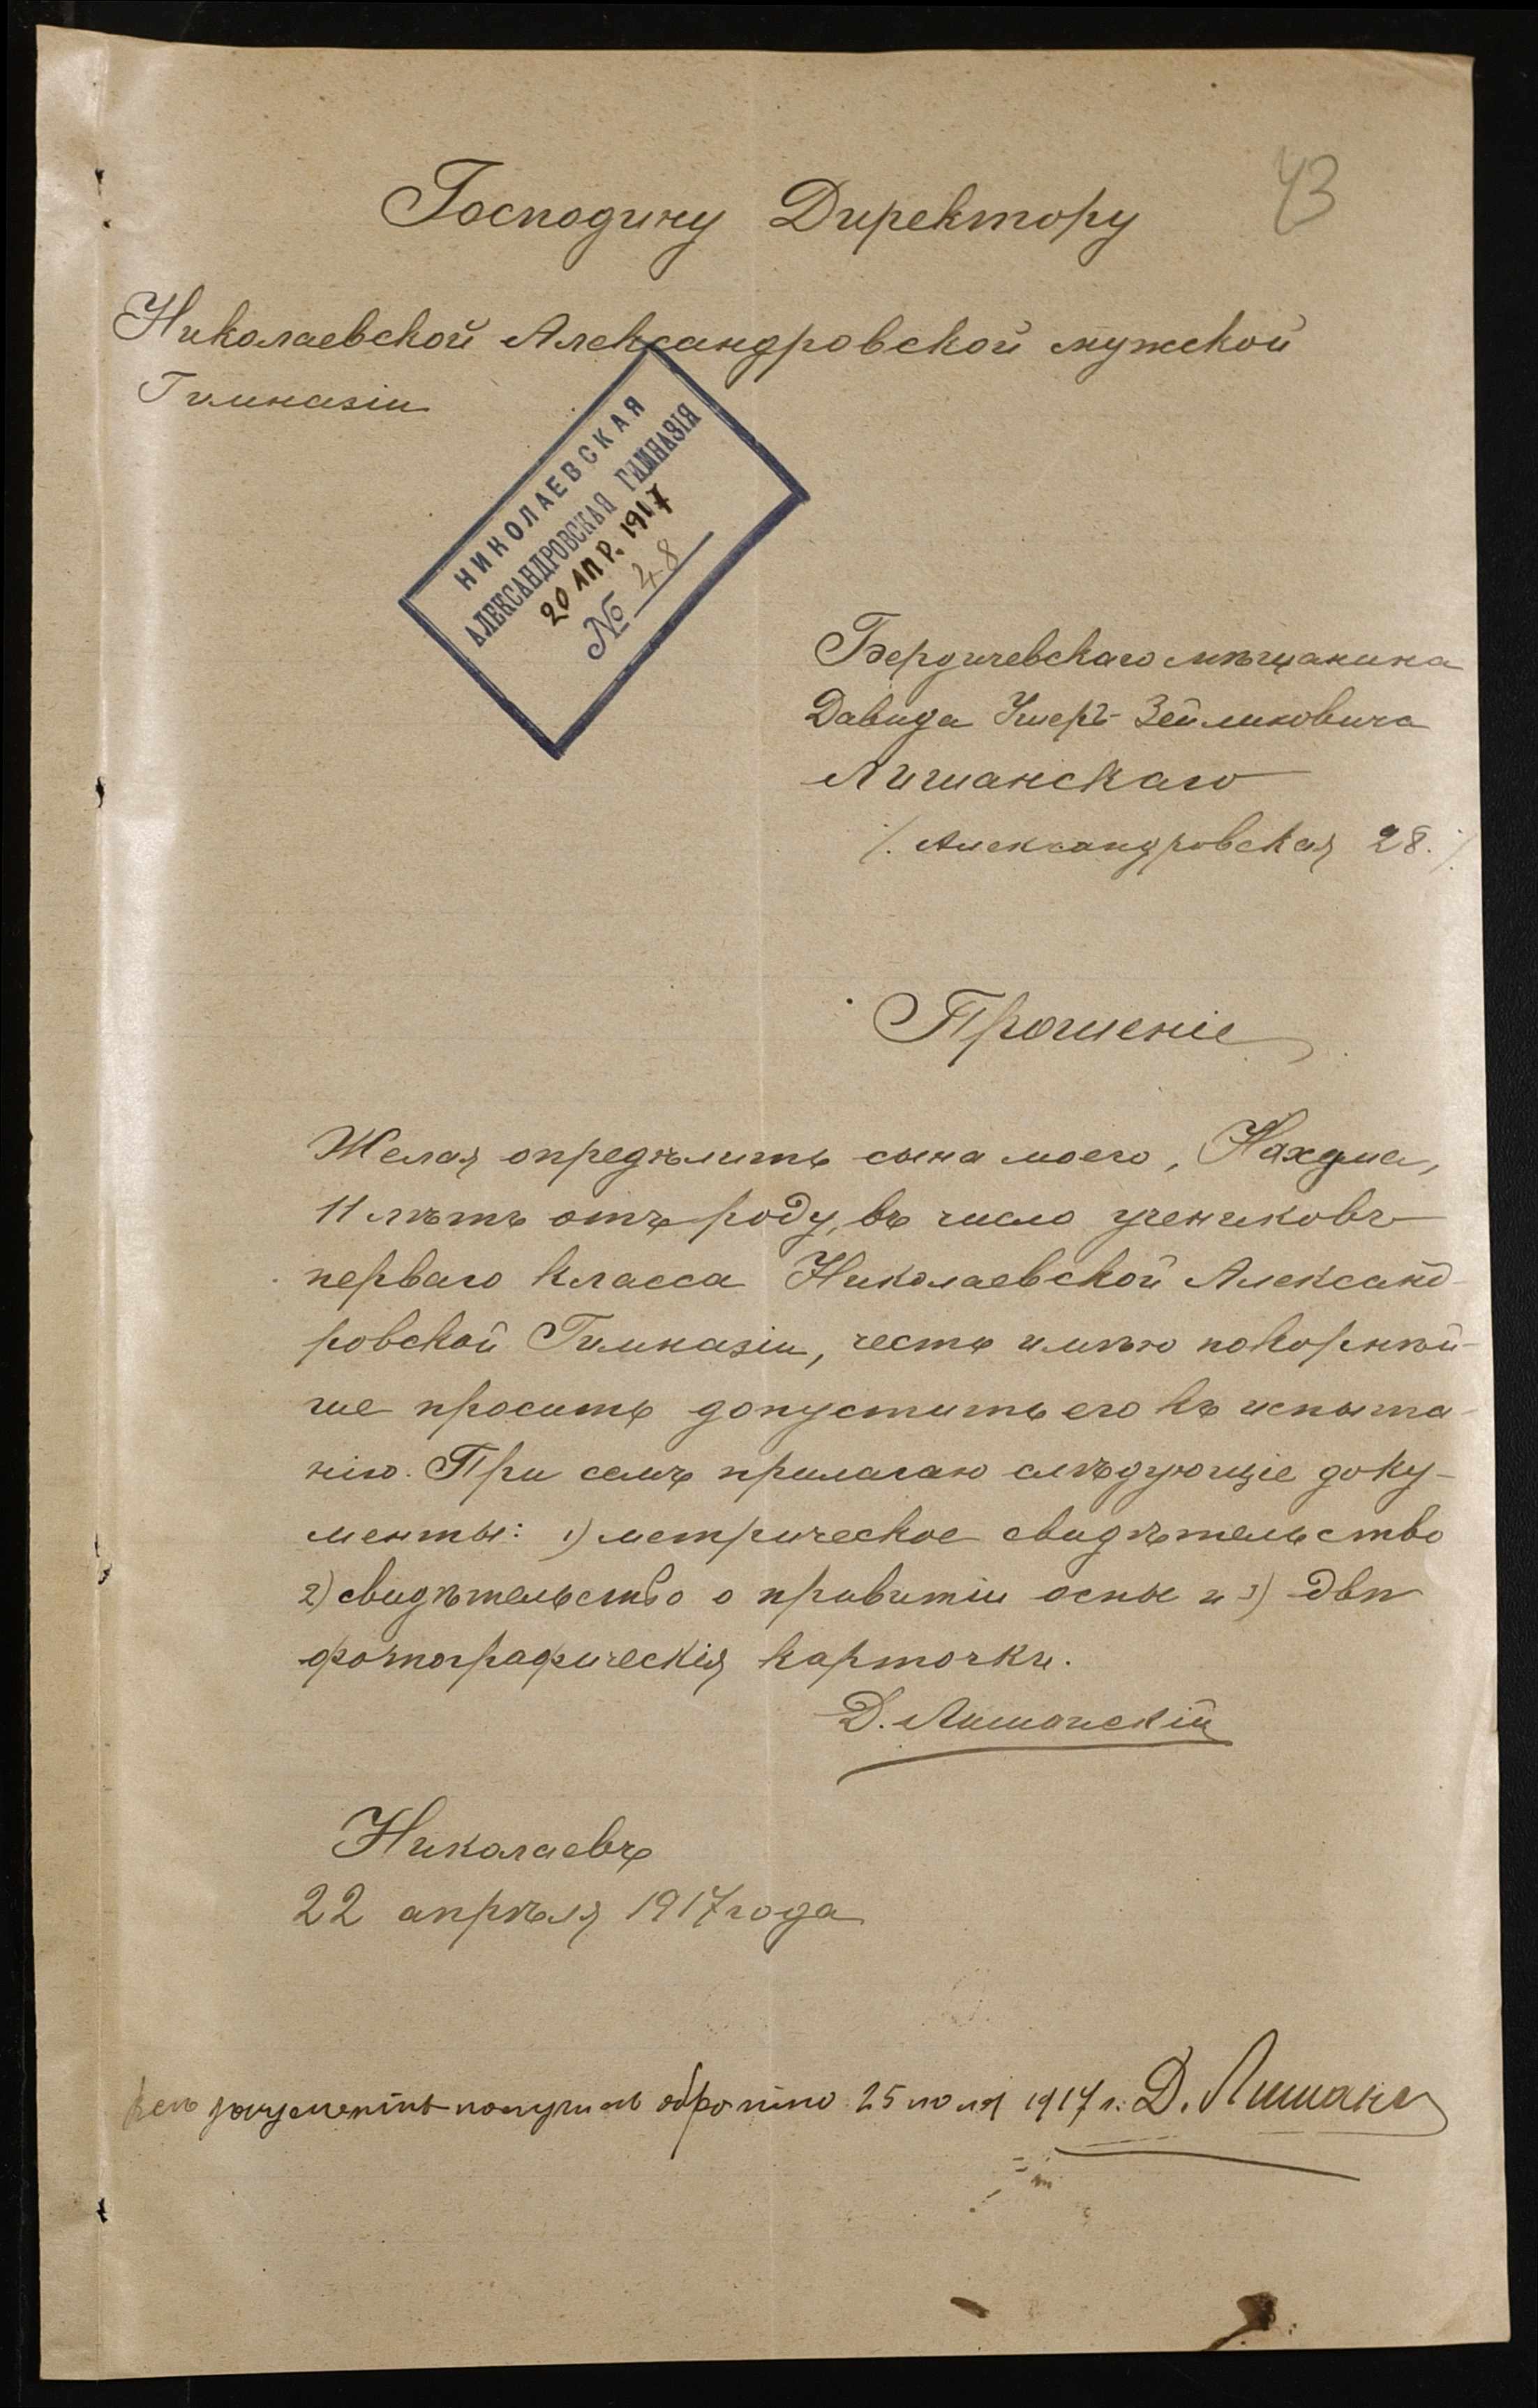 43
Господину Директору
Николаевской Александровской мужской
Гимназіи
НИКОЛАЕВСКАЯ
АЛЕКСАНДРОВСКАЯ ГИМНАЗІЯ
20 АПР. 1917
№ 48
Бердичевскаго мѣщанина
Давида Ушеръ-Зейликовича
Лишанскаго
/. Александровская 28. /.
Прошеніе
Желая опредѣлить сына моего, Нахума,
11 лѣтъ отъ роду, въ число учениковъ
перваго класса Николаевской Александ-
ровской Гимназіи, честь имѣю покорнѣй-
ше просить допустить его къ испыта-
нію. При семъ прилагаю слѣдующіе доку-
менты: 1) метрическое свидѣтельство
2) свидѣтельство о привитіи оспы и 3) двѣ
фотографическія карточки.
Д. Лишанскій
Николаевъ
22 апрѣля 1917 года
получилъ обратно 25 юля 1917 г. Д. Лишанс